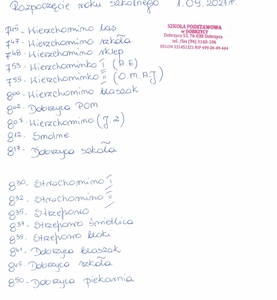 Rozpoczęcie roku szkolnego 1.09.2021r.
SZKOŁA PODSTAWOWA
w DOBRZYCY
Dobrzyca 53, 76-039 Dobrzyca
7⁴⁵- Wierzchomino las
7⁴⁷- Wierzchomino szkoła
7⁴⁸- Wierzchomino sklep
7⁵³- Wierzchominko I
7⁵⁵- Wierzchominko II
8⁰⁰- Wierzchomino bloszak
8⁰⁵- Dobrzyca POM
8⁰⁷- Wierzchomino (J.Z)
8¹²- Smolne
8¹⁷- Dobrzyca szkoła
8³⁰- Strachomino I
8³²- Strachomino II
8³⁵- Strzepowo
8³⁷- Strzepowo Świetlica
8³⁹- Strzepowo bloki
8⁴¹- Dobrzyca bloszak
8⁴⁵- Dobrzyca szkoła
8⁵⁰- Dobrzyca piekarnia